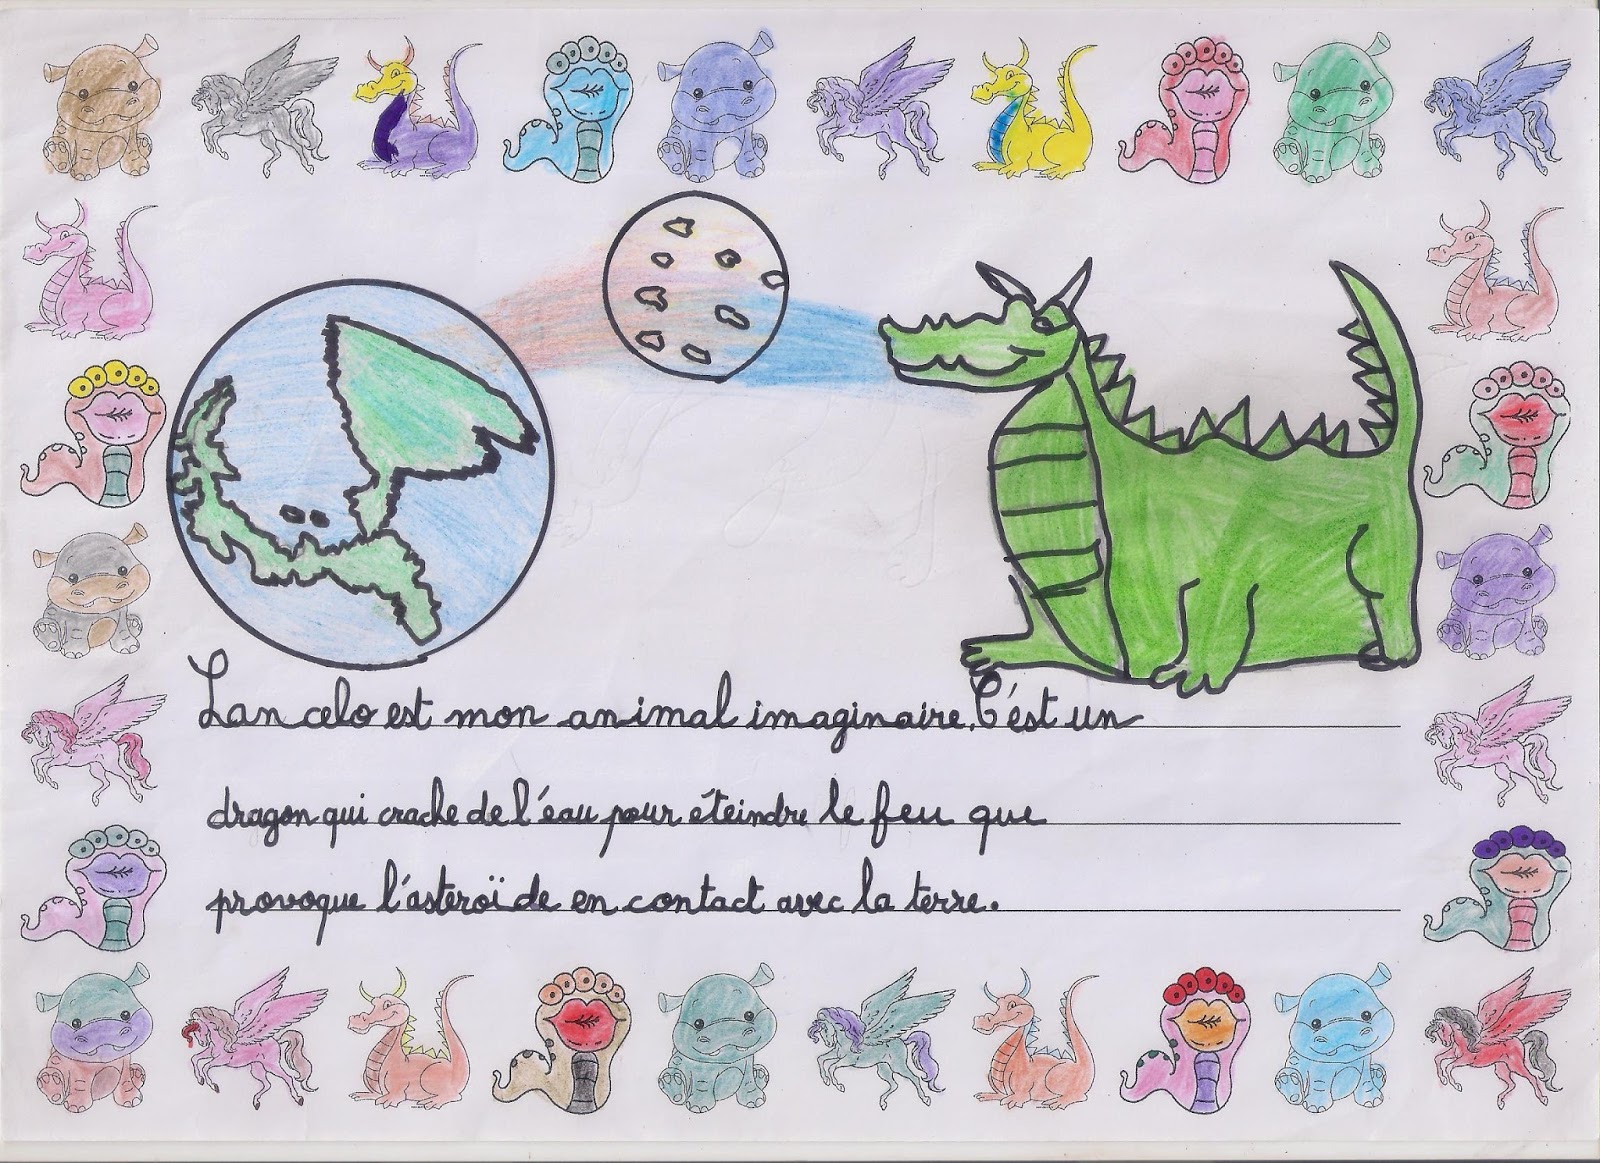 Lan celo est mon animal imaginaire. C'est un
dragon qui crache de l'eau pour éteindre le feu que
provoque l'asteroïde en contact avec la terre.